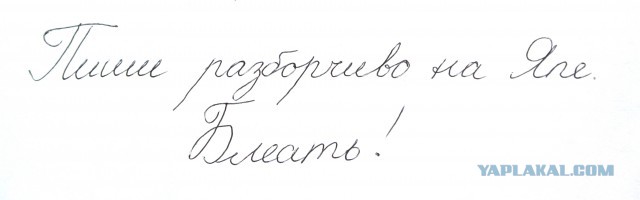 Пиши разборчиво на Япе.
Блеать!
YAPLAKAL.COM